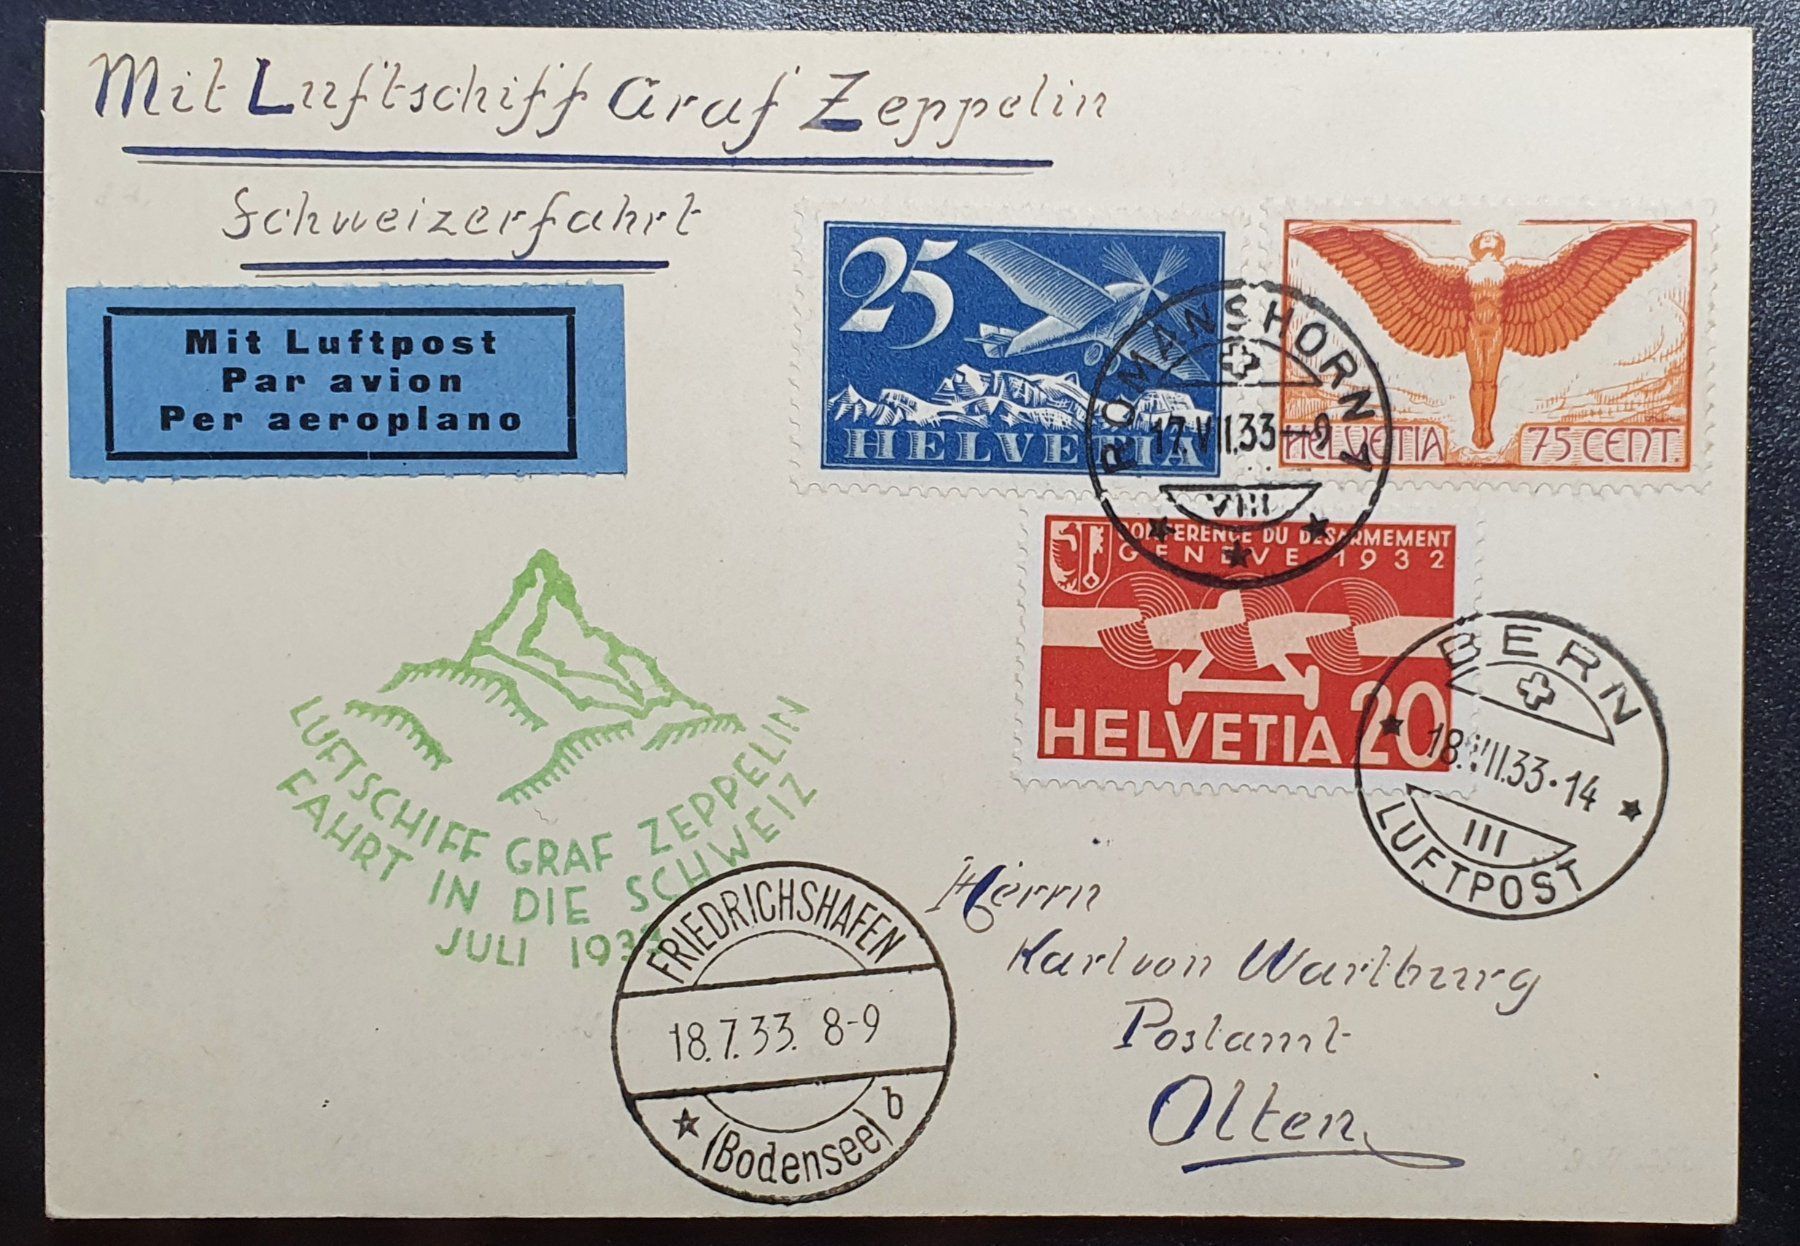 Mit Luftschiff Graf Zeppelin
Schweizerfahrt
Mit Luftpost
Par avion
Per aeroplano
25
HELVETIA
HELVETIA 75 CENT.
ROMANSHORN 1
17.VII.33–9
VIII
CONFERENCE DU DESARMEMENT
GENEVE 1932
HELVETIA 20
BERN
18.VII.33·14
III
LUFTPOST
LUFTSCHIFF GRAF ZEPPELIN
FAHRT IN DIE SCHWEIZ
JULI 1933
FRIEDRICHSHAFEN
18.7.33. 8-9
(Bodensee) b
Herrn
Karl von Wartburg
Postamt
Olten